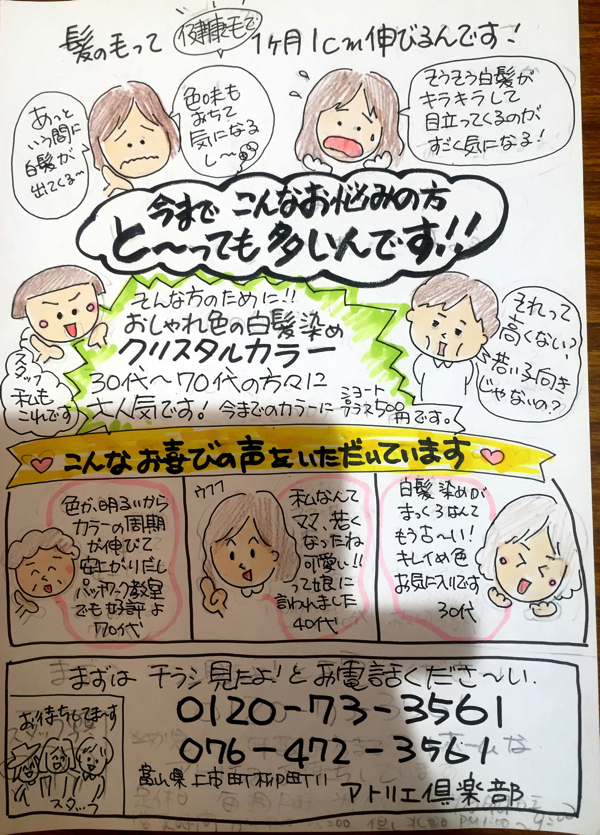 髪の毛って 健康毛で 1ヶ月1cm伸びるんです!
あっと
いう間に
白髪が
出てくる〜
色味も
おちて
気になる
し〜
そろそろ白髪が
キラキラして
目立ってくるのが
すごく気になる!
今まで こんなお悩みの方
と〜っても 多いんです!!
そんな方のために!!
おしゃれ色の白髪染め
クリスタルカラー
30代〜70代の方々に
大人気です! 今までのカラーに ショート プラス500円です。
スタッフ
私も
これです
それって
高くない?
若い子向き
じゃないの?
こんなお喜びの声をいただいています
色が明るいから
カラーの周期
が伸びて
安上がりだし
パッチワーク教室
でも好評よ
70代
ウフフ
私なんて
ママ、若く
なったね
可愛い!!
って娘に
言われました
40代
白髪染めが
まっくろなんて
もう古〜い!
キレイめ色
お気に入りです
30代
まずは チラシ見たよ!とお電話くださ〜い.
お待ちしてま〜す
スタッフ
0120-73-3561
076-472-3561
富山県上市町
アトリエ倶楽部